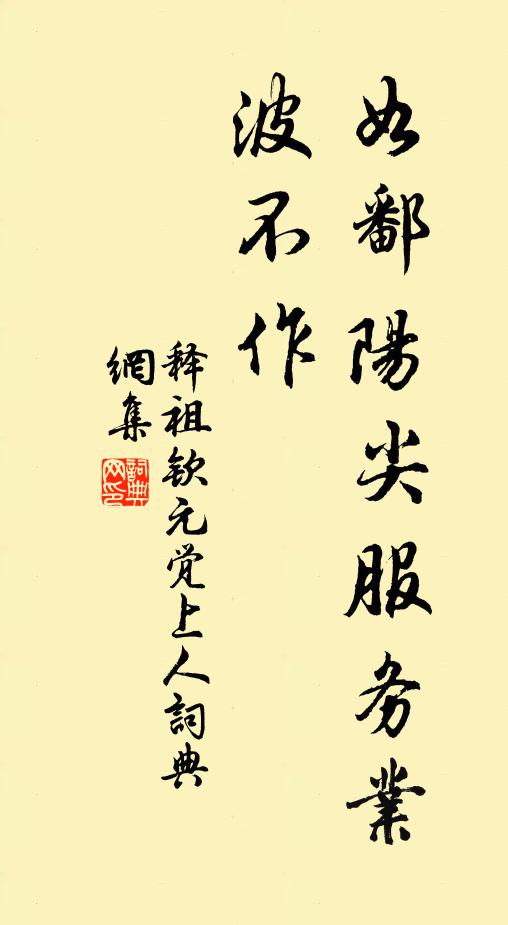 如鄱陽尖服务業
波不作
释祖钦元觉上人詞典
網集
詞典网印